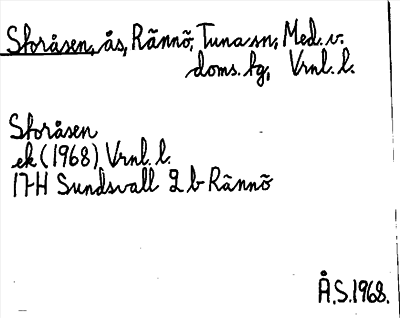 Storåsen, ås, Rännö, Tuna sn, Med. v.
doms. fg, Vrnl. l.
Storåsen
ek (1968) Vrnl. l.
17H Sundsvall 2 b Rännö
Å.S. 1968.